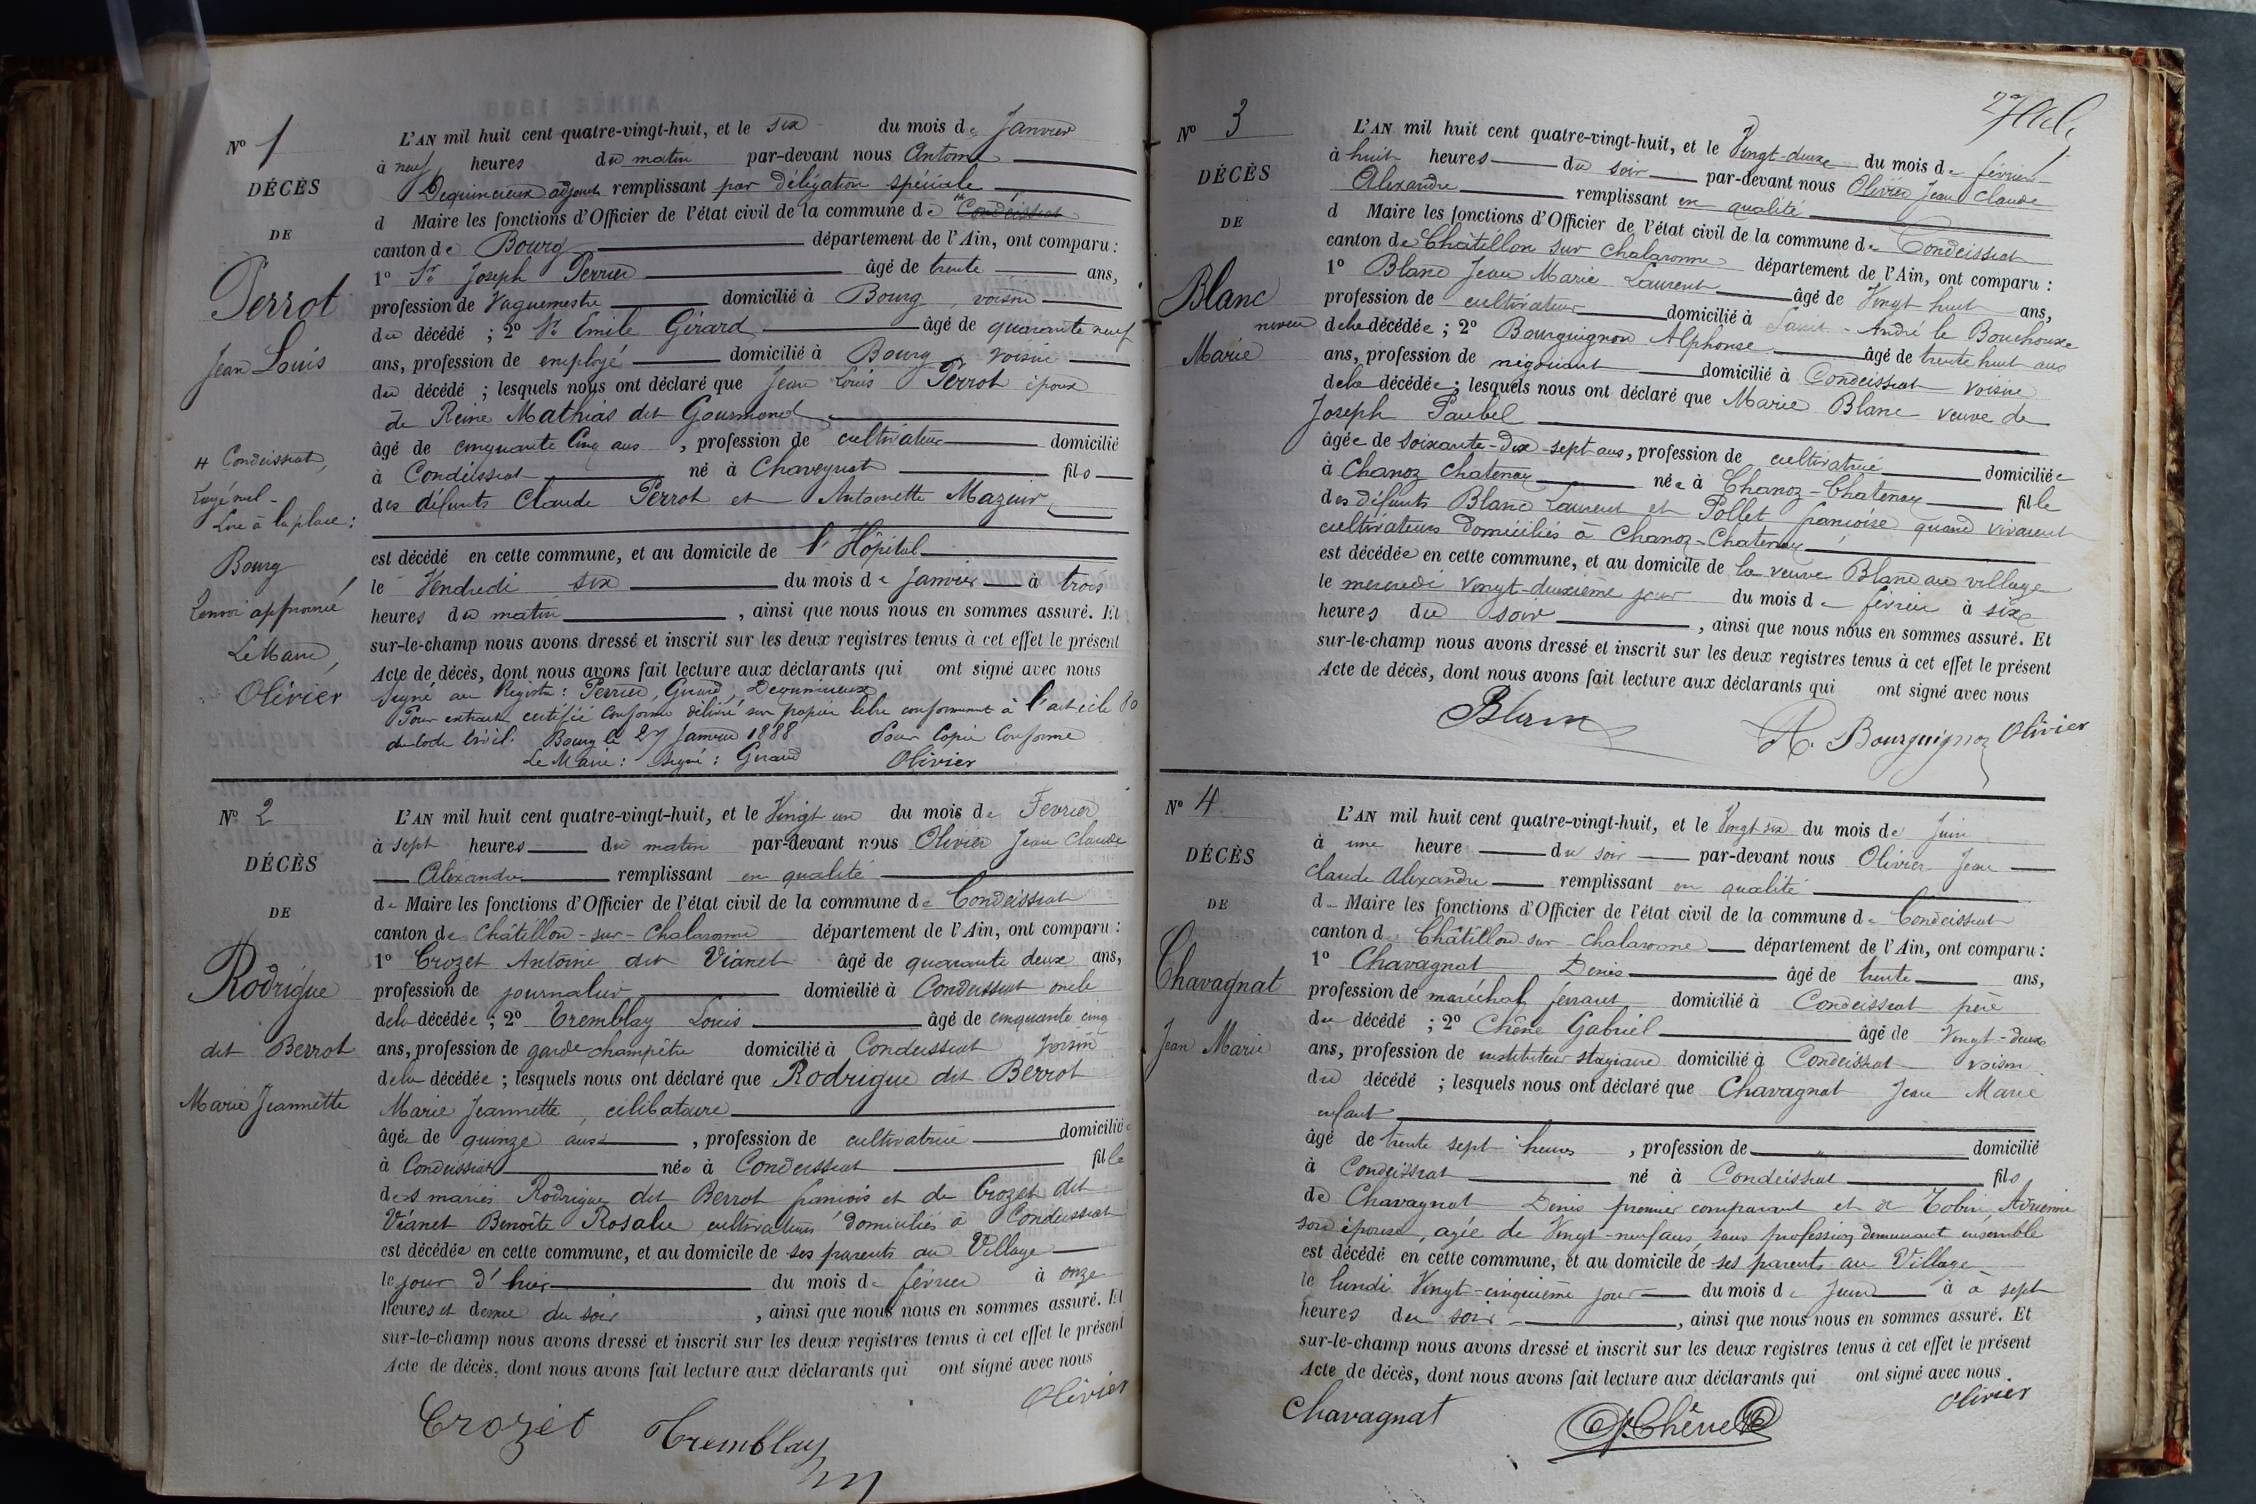 N° 1
DÉCÈS
DE
Perrot
Jean Louis
# Condeissiat,
rayé nul.
Lire à la place :
Bourg
Renvoi approuvé
Le Maire,
Olivier
L'AN mil huit cent quatre-vingt-huit, et le six du mois de Janvier
à neuf heures du matin par-devant nous Antoine
Dequincieux adjoint remplissant par délégation spéciale
d Maire les fonctions d'Officier de l'état civil de la commune de Condeissiat
canton de Bourg département de l'Ain, ont comparu :
1° Sr Joseph Perrier âgé de trente ans,
profession de Vaguemestre domicilié à Bourg, voisin
du décédé ; 2° Sr Emile Girard âgé de quarante neuf
ans, profession de employé domicilié à Bourg, voisin
du décédé ; lesquels nous ont déclaré que Jean Louis Perrot époux
de Reine Mathias dit Gourmond
âgé de cinquante cinq ans, profession de cultivateur domicilié
à Condeissiat né à Chaveyriat fils
des défunts Claude Perrot et Antoinette Mazuir
est décédé en cette commune, et au domicile de l'Hôpital
le Vendredi six du mois de Janvier à trois
heures du matin, ainsi que nous nous en sommes assuré. Et
sur-le-champ nous avons dressé et inscrit sur les deux registres tenus à cet effet le présent
Acte de décès, dont nous avons fait lecture aux déclarants qui ont signé avec nous
Signé au Registre : Perrier, Girard, Dequincieux
Pour extrait certifié conforme délivré sur papier libre conformément à l'article 80
du Code Civil. Bourg le 27 Janvier 1888 Pour Copie Conforme
Le Maire : signé : Girard Olivier
N° 2
DÉCÈS
DE
Rodrigue
dit Berrot
Marie Jeannette
L'AN mil huit cent quatre-vingt-huit, et le Vingt un du mois de Fevrier
à sept heures du matin par-devant nous Olivier Jean Claude
Alexandre remplissant en qualité
de Maire les fonctions d'Officier de l'état civil de la commune de Condeissiat
canton de Châtillon-sur-Chalaronne département de l'Ain, ont comparu :
1° Crozet Antoine dit Vianet âgé de quarante deux ans,
profession de journalier domicilié à Condeissiat oncle
de la décédée ; 2° Tremblay Louis âgé de cinquante cinq
ans, profession de garde champêtre domicilié à Condeissiat voisin
de la décédée ; lesquels nous ont déclaré que Rodrigue dit Berrot
Marie Jeannette, célibataire
âgée de quinze ans, profession de cultivatrice domiciliée
à Condeissiat née à Condeissiat fille
des mariés Rodrigue dit Berrot françois et de Crozet dit
Vianet Benoîte Rosalie, cultivateurs domiciliés à Condeissiat
est décédée en cette commune, et au domicile de ses parents au Village
le jour d'hier du mois de février à onze
heures et demie du soir, ainsi que nous nous en sommes assuré. Et
sur-le-champ nous avons dressé et inscrit sur les deux registres tenus à cet effet le présent
Acte de décès, dont nous avons fait lecture aux déclarants qui ont signé avec nous
Olivier
Crozet Tremblay
N° 3
DÉCÈS
DE
Blanc
Marie
L'AN mil huit cent quatre-vingt-huit, et le Vingt-deux du mois de février
à huit heures du soir par-devant nous Olivier Jean Claude
Alexandre remplissant en qualité
d Maire les fonctions d'Officier de l'état civil de la commune de Condeissiat
canton de Châtillon sur Chalaronne département de l'Ain, ont comparu :
1° Blanc Jean Marie Laurent âgé de Vingt huit ans,
profession de cultivateur domicilié à Saint-André le Bouchoux
neveu de la décédée ; 2° Bourguignon Alphonse âgé de trente huit ans
ans, profession de négociant domicilié à Condeissiat voisin
de la décédée ; lesquels nous ont déclaré que Marie Blanc veuve de
Joseph Paubel
âgée de soixante-dix-sept ans, profession de cultivatrice domiciliée
à Chanoz Chatenay née à Chanoz-Chatenay fille
des défunts Blanc Laurent et Pollet françoise quand vivaient
cultivateurs domiciliés à Chanoz-Chatenay
est décédée en cette commune, et au domicile de la veuve Blanc au village
le mercredi vingt-deuxième jour du mois de février à six
heures du soir, ainsi que nous nous en sommes assuré. Et
sur-le-champ nous avons dressé et inscrit sur les deux registres tenus à cet effet le présent
Acte de décès, dont nous avons fait lecture aux déclarants qui ont signé avec nous
Blanc A. Bourguignon Olivier
N° 4
DÉCÈS
DE
Chavagnat
Jean Marie
L'AN mil huit cent quatre-vingt-huit, et le Vingt six du mois de Juin
à une heure du soir par-devant nous Olivier Jean
Claude Alexandre remplissant en qualité
de Maire les fonctions d'Officier de l'état civil de la commune de Condeissiat
canton d Châtillon-sur-Chalaronne département de l'Ain, ont comparu :
1° Chavagnat Denis âgé de trente ans,
profession de maréchal ferrant domicilié à Condeissiat père
du décédé ; 2° Chêne Gabriel âgé de Vingt-deux
ans, profession de instituteur stagiaire domicilié à Condeissiat voisin
du décédé ; lesquels nous ont déclaré que Chavagnat Jean Marie
enfant
âgé de trente sept heures, profession de " domicilié
à Condeissiat né à Condeissiat fils
de Chavagnat Denis premier comparant et de Tobin Adrienne
son épouse, agée de Vingt-neuf ans, sans profession demeurant ensemble
est décédé en cette commune, et au domicile de ses parents au Village
le lundi Vingt-cinquième jour du mois de Juin à à sept
heures du soir, ainsi que nous nous en sommes assuré. Et
sur-le-champ nous avons dressé et inscrit sur les deux registres tenus à cet effet le présent
Acte de décès, dont nous avons fait lecture aux déclarants qui ont signé avec nous.
Olivier
Chavagnat G. Chêne